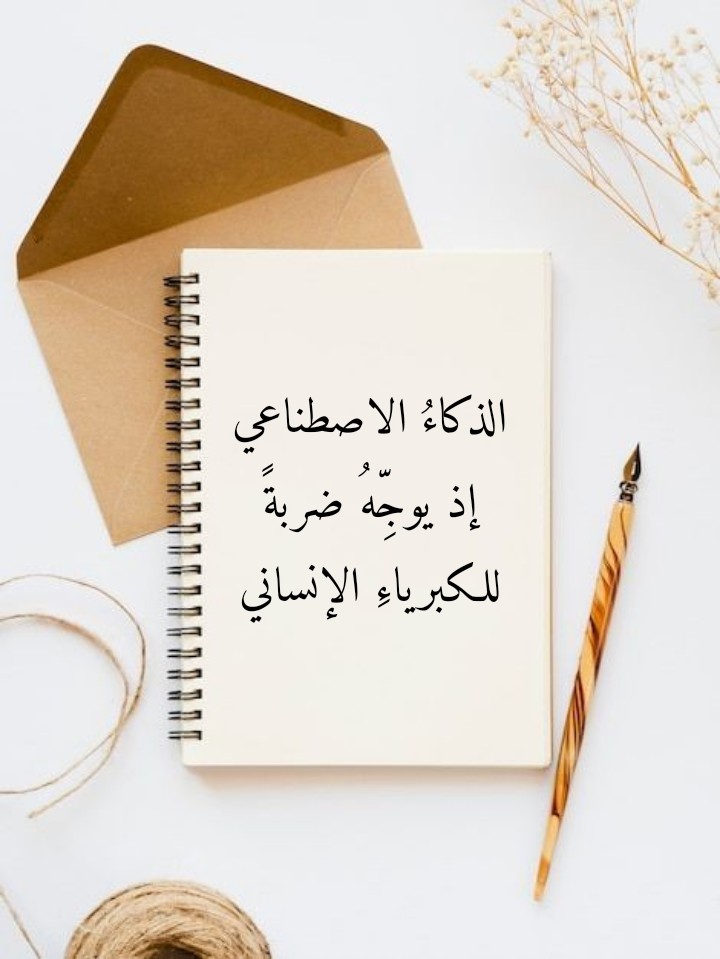 الذكاءُ الاصطناعي
إذ يوجِّهُ ضربةً
للكبرياءِ الإنساني